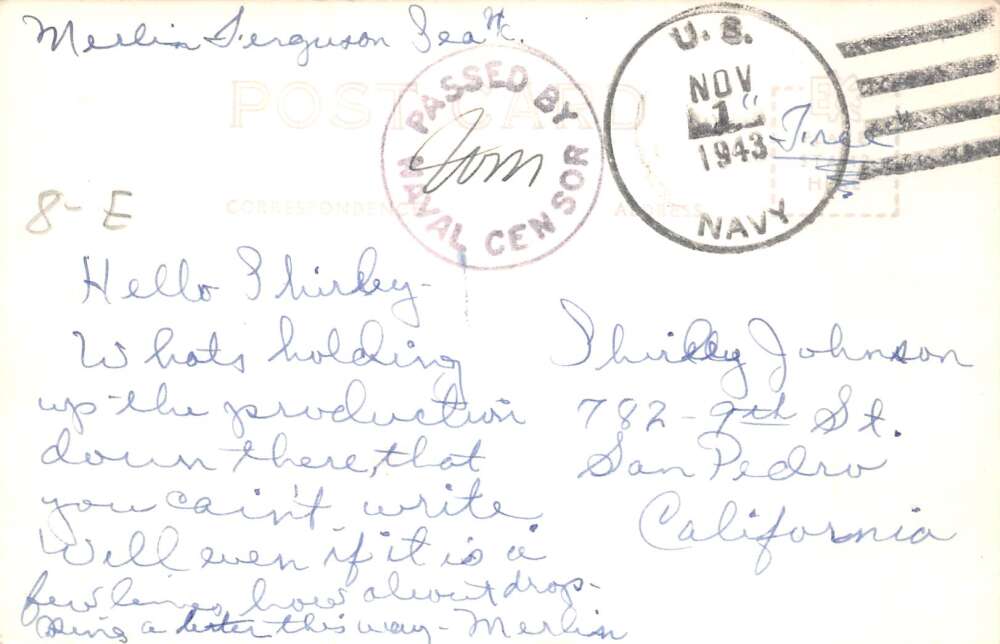 Merlin Ferguson Sea 1/c.
POST CARD
PASSED BY
NAVAL CENSOR
Tom
U. S.
NOV
1
1943
NAVY
Free
8-E
CORRESPONDENCE
ADDRESS
HERE
Hello Shirley-
Whats holding
up the production
down there, that
you cain't write
Well even if it is a
few lines, how about drop-
ping a letter this way- Merlin
Shirley Johnson
782-9th St.
San Pedro
California